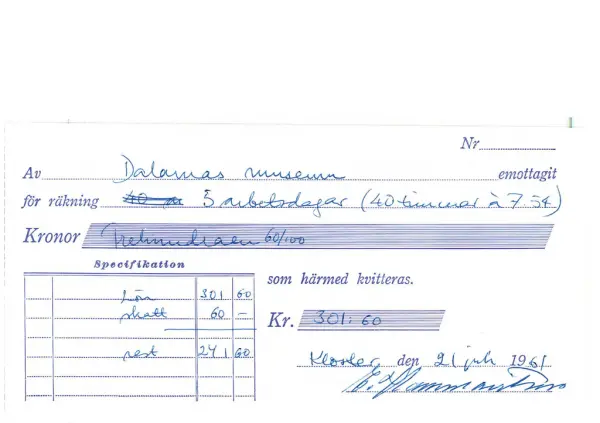 Nr
Av Dalarnas museum emottagit
för räkning 5 arbetsdagar (40 timmar à 7.54)
Kronor 60/100
Specifikation
som härmed kvitteras.
lön 301 60
skatt 60 –
Kr. 301: 60
rest 241 60
Kloster den 21 juli 1961